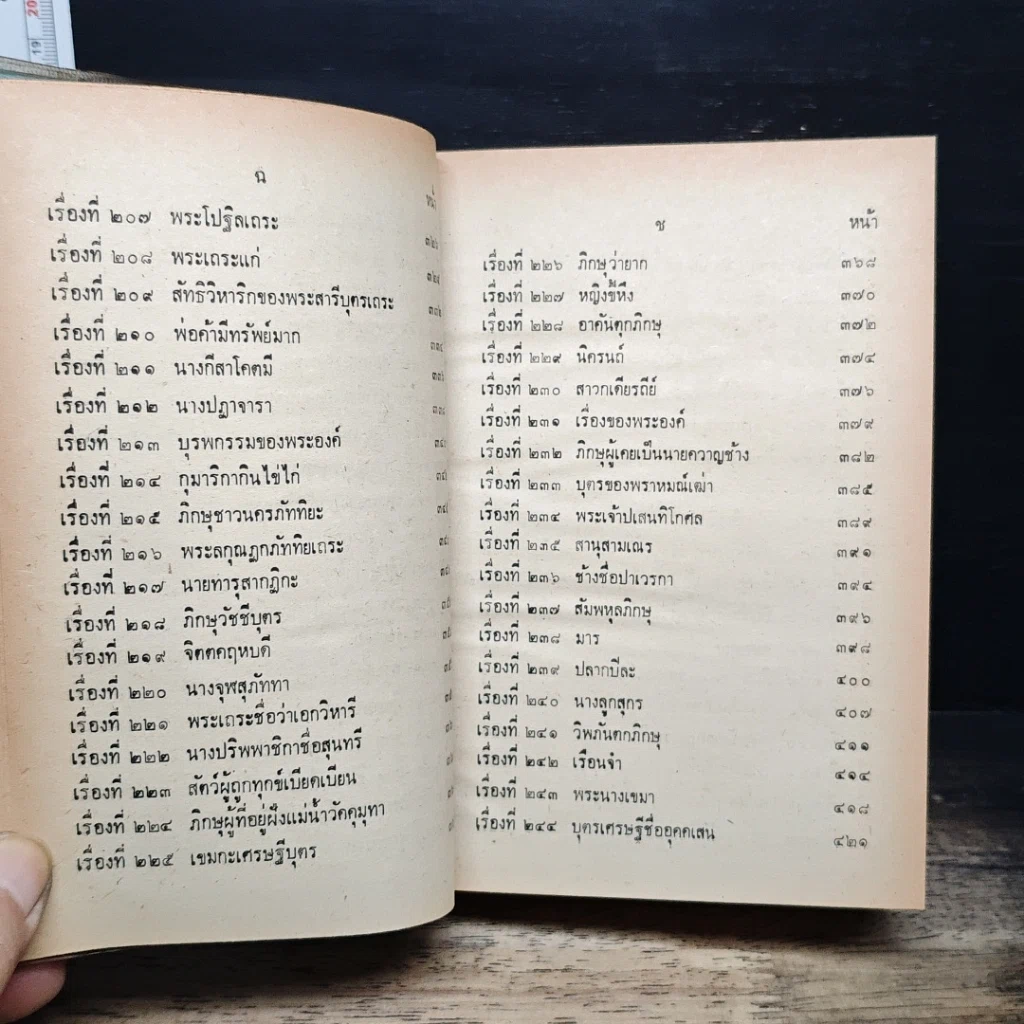 ฉ
หน้า
เรื่องที่ ๒๐๗ พระโปฐิลเถระ ๓๒๖
เรื่องที่ ๒๐๘ พระเถระแก่
เรื่องที่ ๒๐๙ สัทธิวิหาริกของพระสารีบุตรเถระ
เรื่องที่ ๒๑๐ พ่อค้ามีทรัพย์มาก
เรื่องที่ ๒๑๑ นางกีสาโคตมี
เรื่องที่ ๒๑๒ นางปฏาจารา
เรื่องที่ ๒๑๓ บุรพกรรมของพระองค์
เรื่องที่ ๒๑๔ กุมาริกากินไข่ไก่
เรื่องที่ ๒๑๕ ภิกษุชาวนครภัททิยะ
เรื่องที่ ๒๑๖ พระลกุณฏกภัททิยเถระ
เรื่องที่ ๒๑๗ นายทารุสากฏิกะ
เรื่องที่ ๒๑๘ ภิกษุวัชชีบุตร
เรื่องที่ ๒๑๙ จิตตคฤหบดี
เรื่องที่ ๒๒๐ นางจุฬสุภัททา
เรื่องที่ ๒๒๑ พระเถระชื่อว่าเอกวิหารี
เรื่องที่ ๒๒๒ นางปริพพาชิกาชื่อสุนทรี
เรื่องที่ ๒๒๓ สัตว์ผู้ถูกทุกข์เบียดเบียน
เรื่องที่ ๒๒๔ ภิกษุผู้ที่อยู่ฝั่งแม่น้ำวัคคุมุทา
เรื่องที่ ๒๒๕ เขมกะเศรษฐีบุตร
ช หน้า
เรื่องที่ ๒๒๖ ภิกษุว่ายาก ๓๖๘
เรื่องที่ ๒๒๗ หญิงขี้หึง ๓๗๐
เรื่องที่ ๒๒๘ อาคันตุกภิกษุ ๓๗๒
เรื่องที่ ๒๒๙ นิครนถ์ ๓๗๔
เรื่องที่ ๒๓๐ สาวกเดียรถีย์ ๓๗๖
เรื่องที่ ๒๓๑ เรื่องของพระองค์ ๓๗๙
เรื่องที่ ๒๓๒ ภิกษุผู้เคยเป็นนายควาญช้าง ๓๘๒
เรื่องที่ ๒๓๓ บุตรของพราหมณ์เฒ่า ๓๘๕
เรื่องที่ ๒๓๔ พระเจ้าปเสนทิโกศล ๓๘๙
เรื่องที่ ๒๓๕ สานุสามเณร ๓๙๑
เรื่องที่ ๒๓๖ ช้างชื่อปาเวรกา ๓๙๔
เรื่องที่ ๒๓๗ สัมพหุลภิกษุ ๓๙๖
เรื่องที่ ๒๓๘ มาร ๓๙๘
เรื่องที่ ๒๓๙ ปลากปิละ ๔๐๐
เรื่องที่ ๒๔๐ นางลูกสุกร ๔๐๗
เรื่องที่ ๒๔๑ วิพภันตกภิกษุ ๔๑๑
เรื่องที่ ๒๔๒ เรือนจำ ๔๑๔
เรื่องที่ ๒๔๓ พระนางเขมา ๔๑๘
เรื่องที่ ๒๔๔ บุตรเศรษฐีชื่ออุคคเสน ๔๒๑
19
20